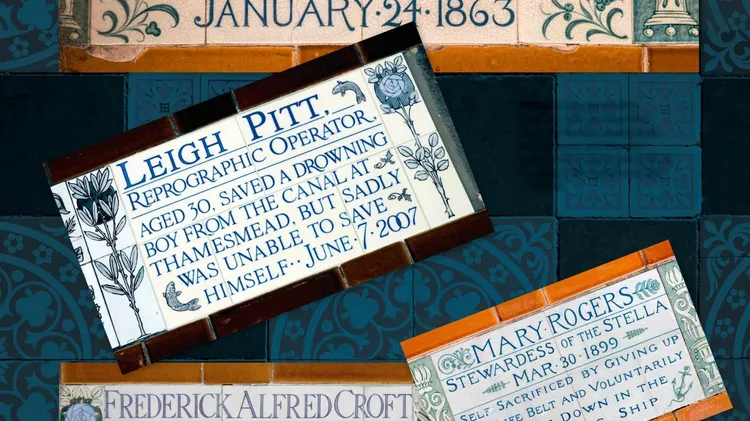 JANUARY·24·1863
LEIGH PITT,
REPROGRAPHIC OPERATOR.
AGED 30, SAVED A DROWNING
BOY FROM THE CANAL AT
THAMESMEAD, BUT SADLY
WAS UNABLE TO SAVE
HIMSELF·· JUNE·7·2007
MARY·ROGERS
STEWARDESS OF THE STELLA
MAR·30·1899
SELF SACRIFICED BY GIVING UP
FE BELT AND VOLUNTARILY
DOWN IN THE
SHIP
FREDERICK ALFRED CROFT